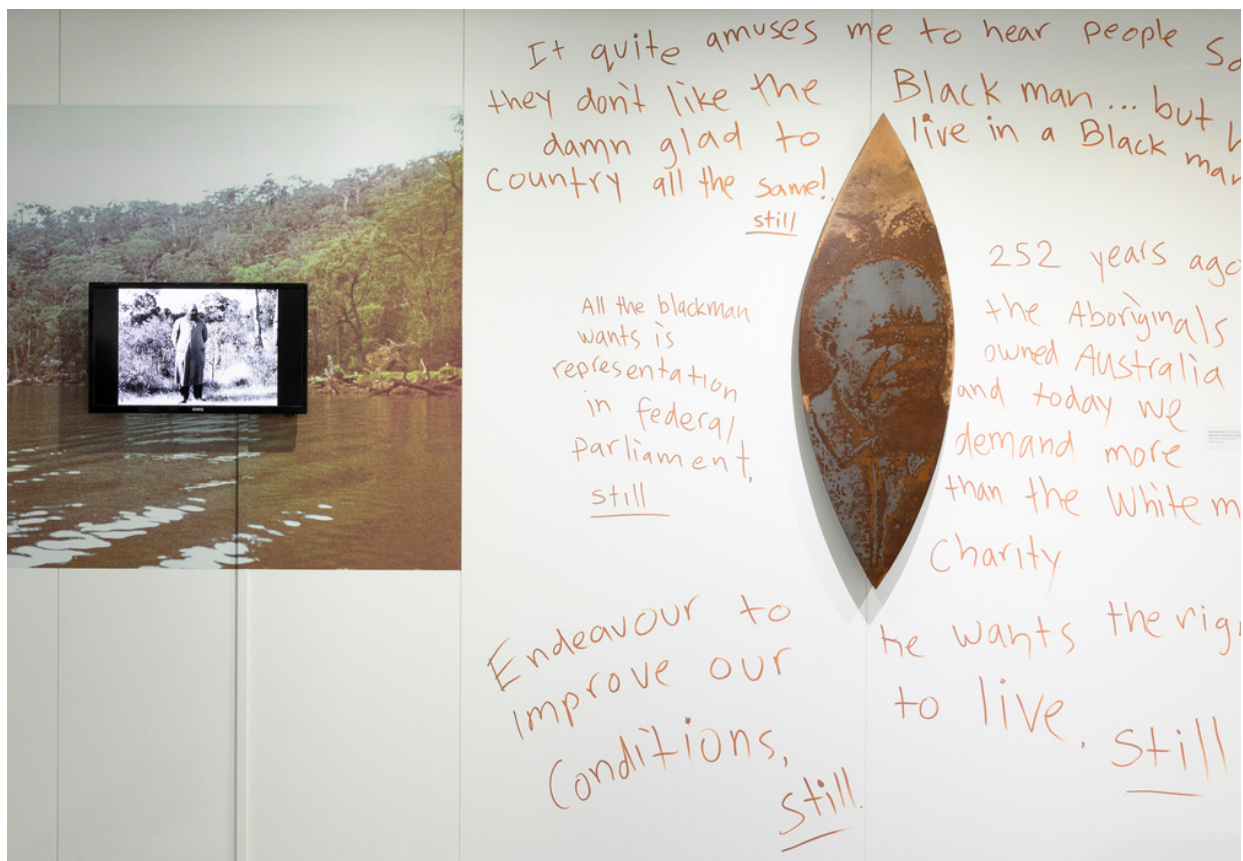 It quite amuses me to hear people
they don't like the Black man... but
damn glad to live in a Black
Country all the same!
still
All the blackman
wants is
representation
in federal
parliament,
still
252 years ago
the Aboriginals
owned Australia
and today we
demand more
than the White
Charity
he wants the
to live.
still
Endeavour to
improve our
Conditions,
still.